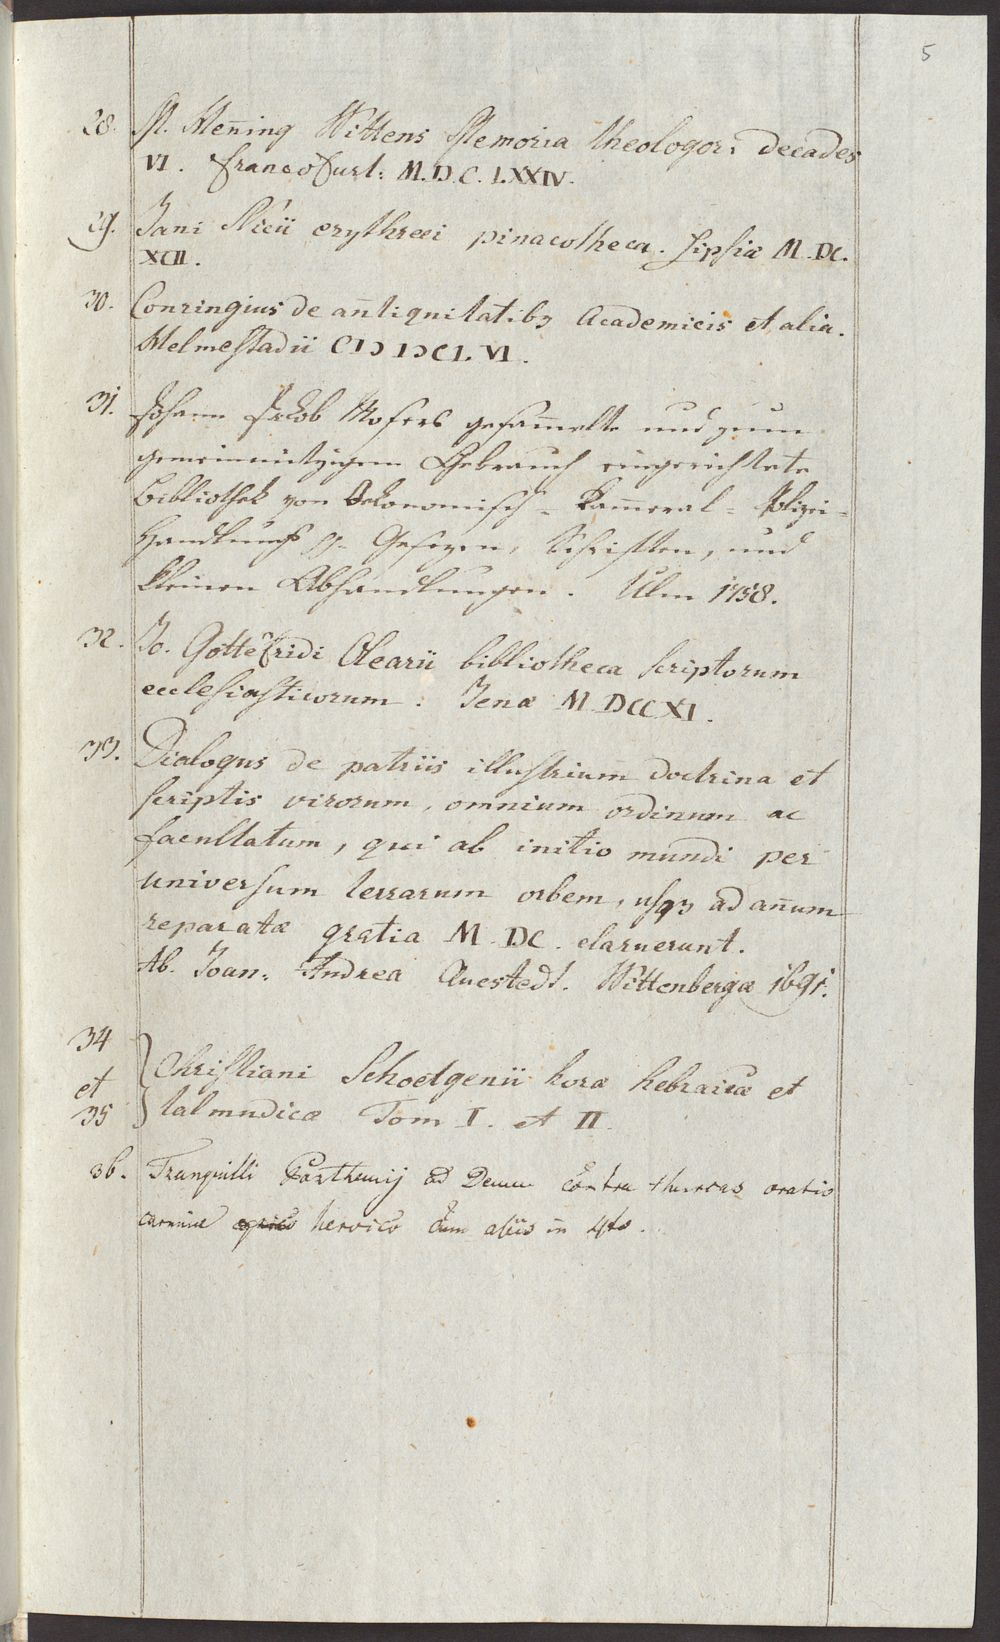 5
28. M. Hen̄ing Wittens Memoria theologor: decades
VI. francofurt: M.D.C.LXXIV.
29. Jani Nicii erythræi pinacotheca. Lipsiæ M.DC.
XCII.
30. Conringius de an̄tiquitatibʒ Academicis et alia.
Helmestadii CIƆ IƆCLVI.
31. Johann Jakob Mosers gesam̄elte und zum
gemeinnützigen Gebrauch eingerichtete
Bibliothek von Oekonomisch- Kam̄eral- Polizei-
Handlungs Gesezen, Schriften, und
kleinen Abhandlungen. Ulm 1758.
32. Jo. Gottefridi Olearii bibliotheca scriptorum
ecclesiasticorum. Jenæ MDCCXI.
33. Dialogus de patriis illustrium doctrina et
scriptis virorum, omnium ordinum ac
facultatum, qui ab initio mundi per
universum terrarum orbem, usqʒ ad an̄um
reparatæ gratia M.DC. claruerunt.
Ab. Joan: Andrea Questedt. Wittenbergæ 1691.
34
et
35
Christiani Schoetgenii horæ hebraicæ et
talmudicæ Tom I. et II.
36. Tranquilli Parthenij ad Deum contra thurcas oratio
carmine heroico cum aliis in 4to.